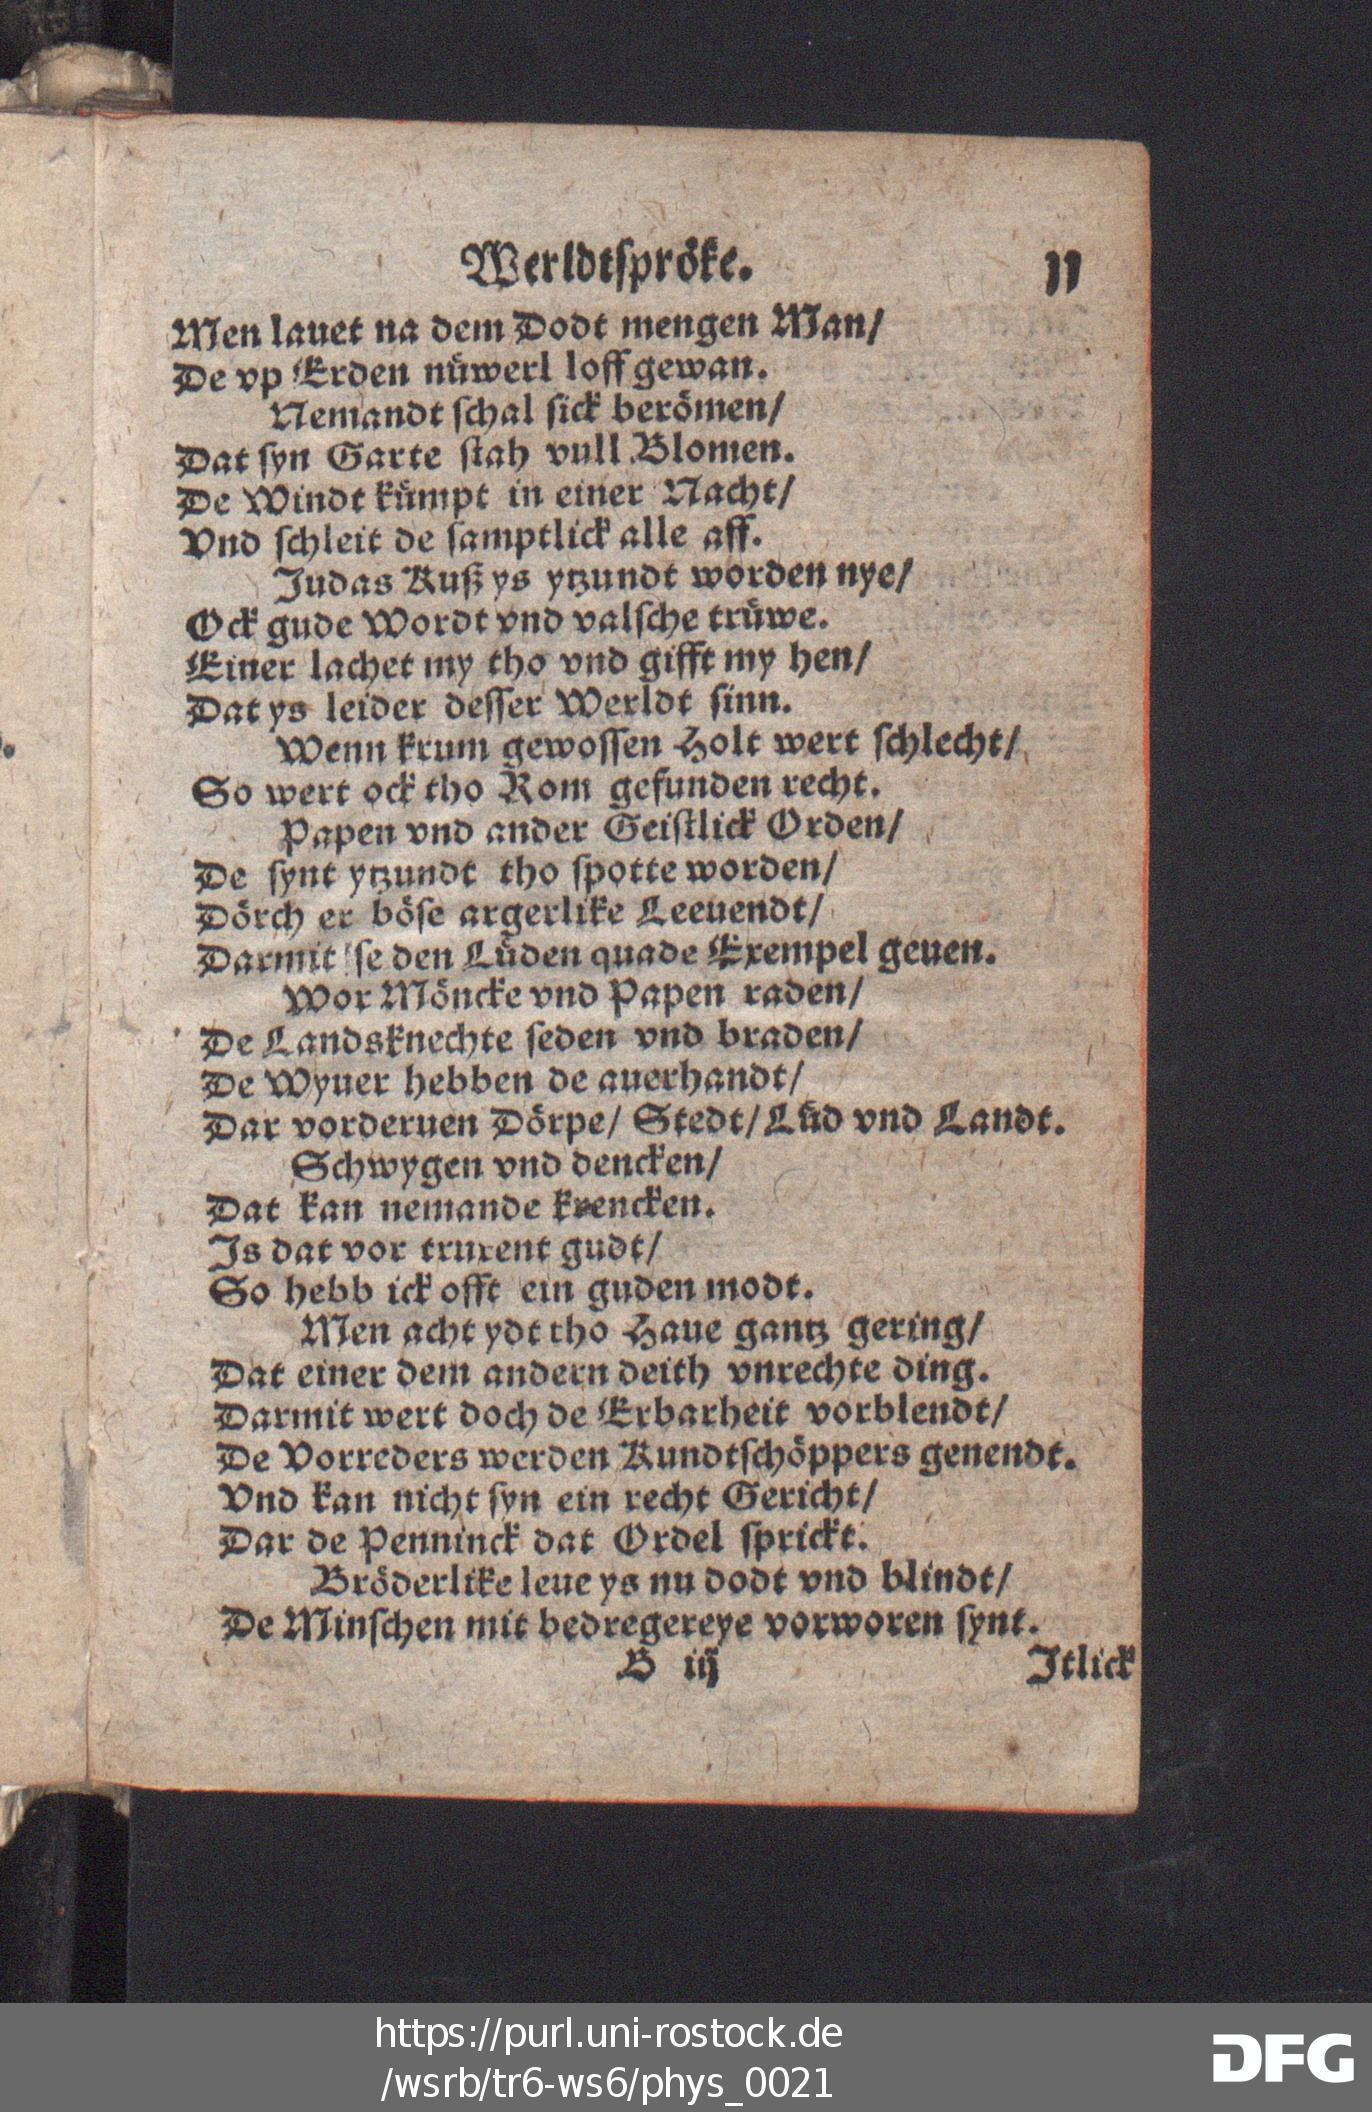 Werldtſpröke. 11
Men lauet na dem Dodt mengen Man/
De vp Erden nüwerl loff gewan.
Nemandt ſchal ſick berömen/
Dat ſyn Garte ſtah vull Blomen.
De Windt kümpt in einer Nacht/
Vnd ſchleit de ſamptlick alle aff.
Judas Kuß ys ytzundt worden nye/
Ock gude Wordt vnd valſche trüwe.
Einer lachet my tho vnd gifft my hen/
Dat ys leider deſſer Werldt ſinn.
Wenn krum gewoſſen Holt wert ſchlecht/
So wert ock tho Rom gefunden recht.
Papen vnd ander Geiſtlick Orden/
De ſynt ytzundt tho ſpotte worden/
Dörch er böſe argerlike Leeuendt/
Darmit ſe den Lüden quade Exempel geuen.
Wor Möncke vnd Papen raden/
De Landsknechte ſeden vnd braden/
De Wyuer hebben de auerhandt/
Dar vorderuen Dörpe/ Stedt/ Lüd vnd Landt.
Schwygen vnd dencken/
Dat kan nemande krencken.
Js dat vor trurent gudt/
So hebb ick offt ein guden modt.
Men acht ydt tho Haue gantz gering/
Dat einer dem andern deith vnrechte ding.
Darmit wert doch de Erbarheit vorblendt/
De Vorreders werden Kundtſchöppers genendt.
Vnd kan nicht ſyn ein recht Gericht/
Dar de Penninck dat Ordel ſprickt.
Bröderlike leue ys nu dodt vnd blindt/
De Minſchen mit bedregereye vorworen ſynt.
B iij Jtlick
https://purl.uni-rostock.de
/wsrb/tr6-ws6/phys_0021
DFG